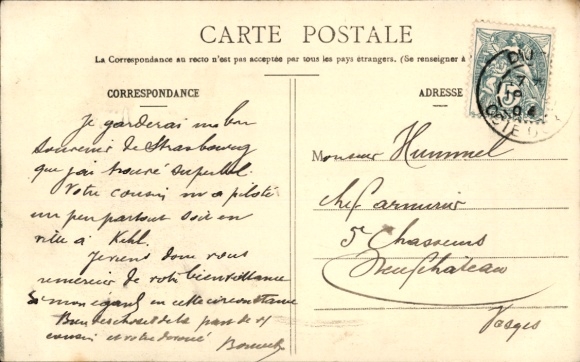 CARTE POSTALE
La Correspondance au recto n'est pas acceptée par tous les pays étrangers. (Se renseigner à
CORRESPONDANCE
Je garderai un bon
souvenir de Strasbourg
que j'ai trouvé superbe.
Votre cousin m'a piloté
un peu partout soit en
ville à Kehl.
Je viens donc vous
remercier de votre bienveillance
à mon égard en cette circonstance
Bien des choses de la part de
cousin et votre dévoué
ADRESSE
Monsieur Hummel
chef armurier
5e Chasseurs
Neufchâteau
Vosges
5